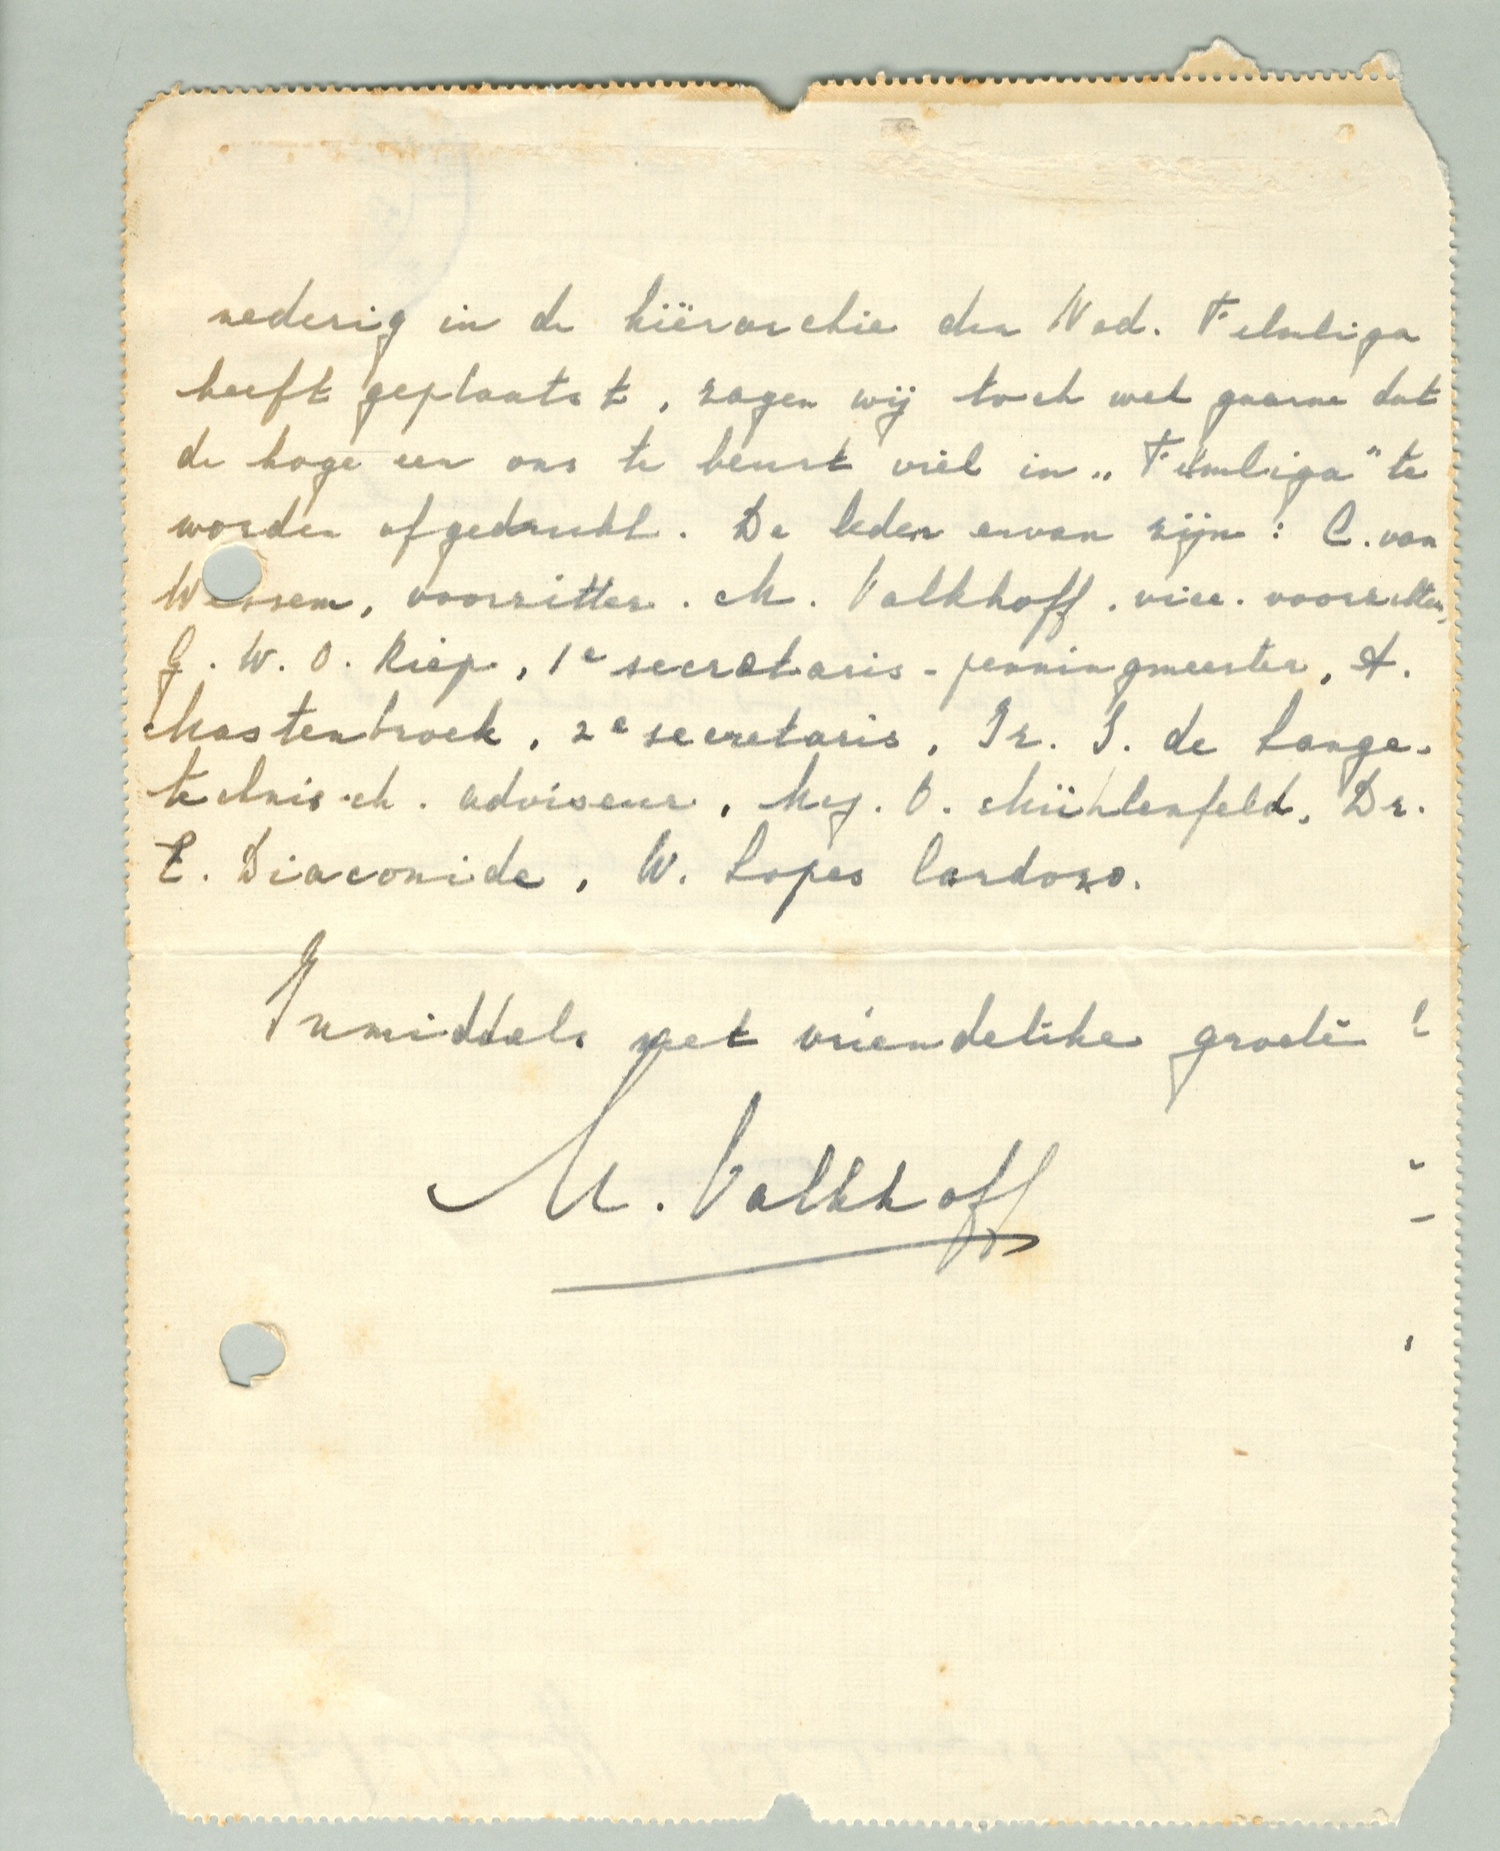 nederig in de hiërarchie der Ned. Filmliga
heeft geplaatst, zagen wij toch wel gaarne dat
de hoge eer ons te beurt viel in „Filmliga" te
worden afgedrukt. De leden ervan zijn: C. van
Wessem, voorzitter. M. Valkhoff, vice-voorzitter,
G. W. O. Riep, 1e secretaris-penningmeester, A.
Mastenbroek, 2e secretaris, Ir. J. de Lange.
technisch adviseur, Mej. O. Mühlenfeld, Dr.
E. Diaconide, W. Lopes Cardozo.
Inmiddels met vriendelike groeten!
M. Valkhoff